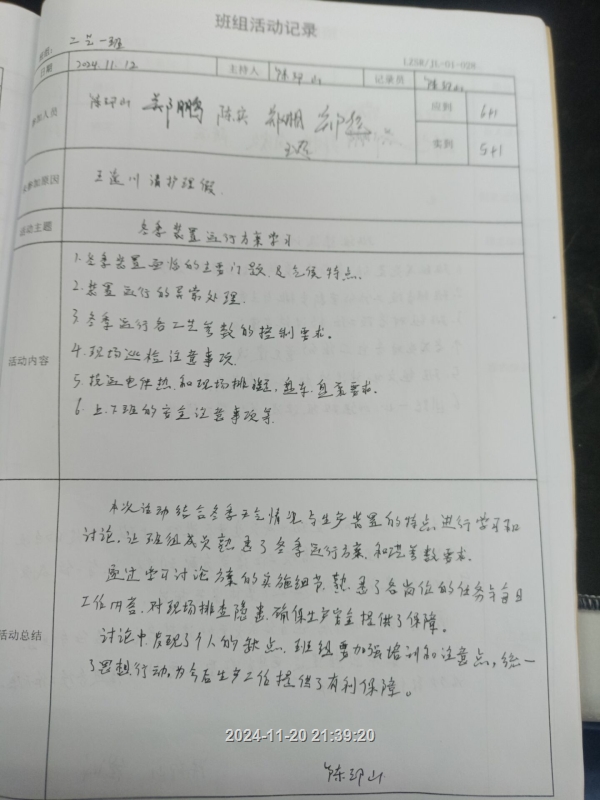 班组活动记录
二艺一班
LZSB/JL-01-028
日期 2024.11.12 主持人 陈邵山 记录员 陈邵山
参加人员 陈邵山 郑鹏 陈宾 应到 6+1
实到 5+1
未参加原因 王遂川请护理假.
活动主题 冬季装置运行方案学习
1.冬季装置面临的主要问题及气候特点.
2.装置运行的异常处理.
3.冬季运行各工艺参数的控制要求。
活动内容
4.现场巡检注意事项.
5.抗返电伴热和现场排凝,盘车.盘泵要求.
6.上下班的安全注意事项等.
本次活动结合冬季天气情况与生产装置的特点,进行学习和
讨论,让班组成员熟悉了冬季运行方案.和工艺参数要求.
通过学习讨论方案的实施细节,熟悉了各岗位的任务与每日
工作内容.对现场排查隐患.确保生产安全提供了保障。
活动总结
讨论中发现了个人的缺点.班组要加强培训和注意点,统一
了思想行动,为今后生产工作提供了有利保障。
2024-11-20 21:39:20
陈邵山